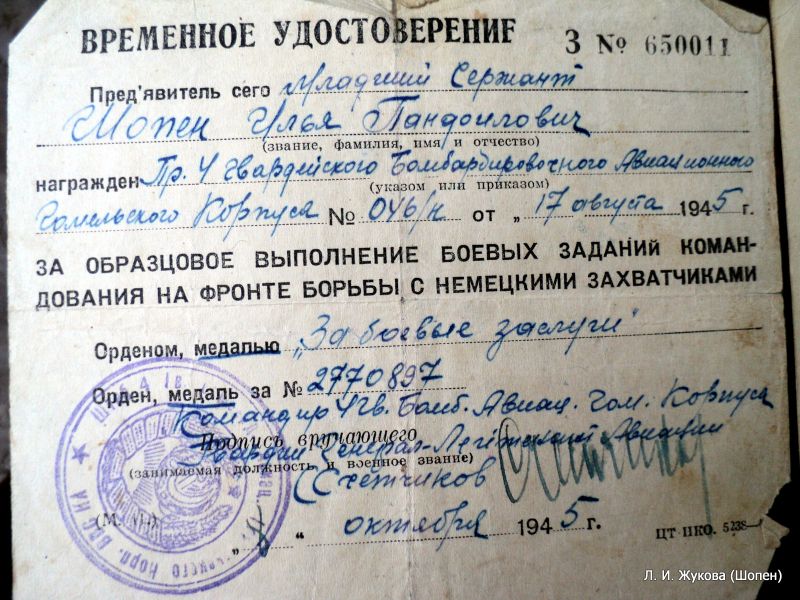 ВРЕМЕННОЕ УДОСТОВЕРЕНИЕ З № 650011
Пред'явитель сего Младший Сержант
Шопен Илья Пандоилович
(звание, фамилия, имя и отчество)
награжден Пр. 4 Гвардейского Бомбардировочного Авиационного
(указом или приказом)
Гомельского Корпуса № 046/н от „17 августа 1945 г.
ЗА ОБРАЗЦОВОЕ ВЫПОЛНЕНИЕ БОЕВЫХ ЗАДАНИЙ КОМАН-
ДОВАНИЯ НА ФРОНТЕ БОРЬБЫ С НЕМЕЦКИМИ ЗАХВАТЧИКАМИ
Орденом, медалью „За боевые заслуги"
Орден, медаль за № 2770897
Командир 4 гв. Бомб. Авиац. Гом. Корпуса
Подпись вручающего
Гвардии Генерал-Лейтенант Авиации
(занимаемая должность и военное звание)
Счетчиков
(М. П.)
„ “ октября 1945 г.
ЦТ НКО. 5238
Л. И. Жукова (Шопен)